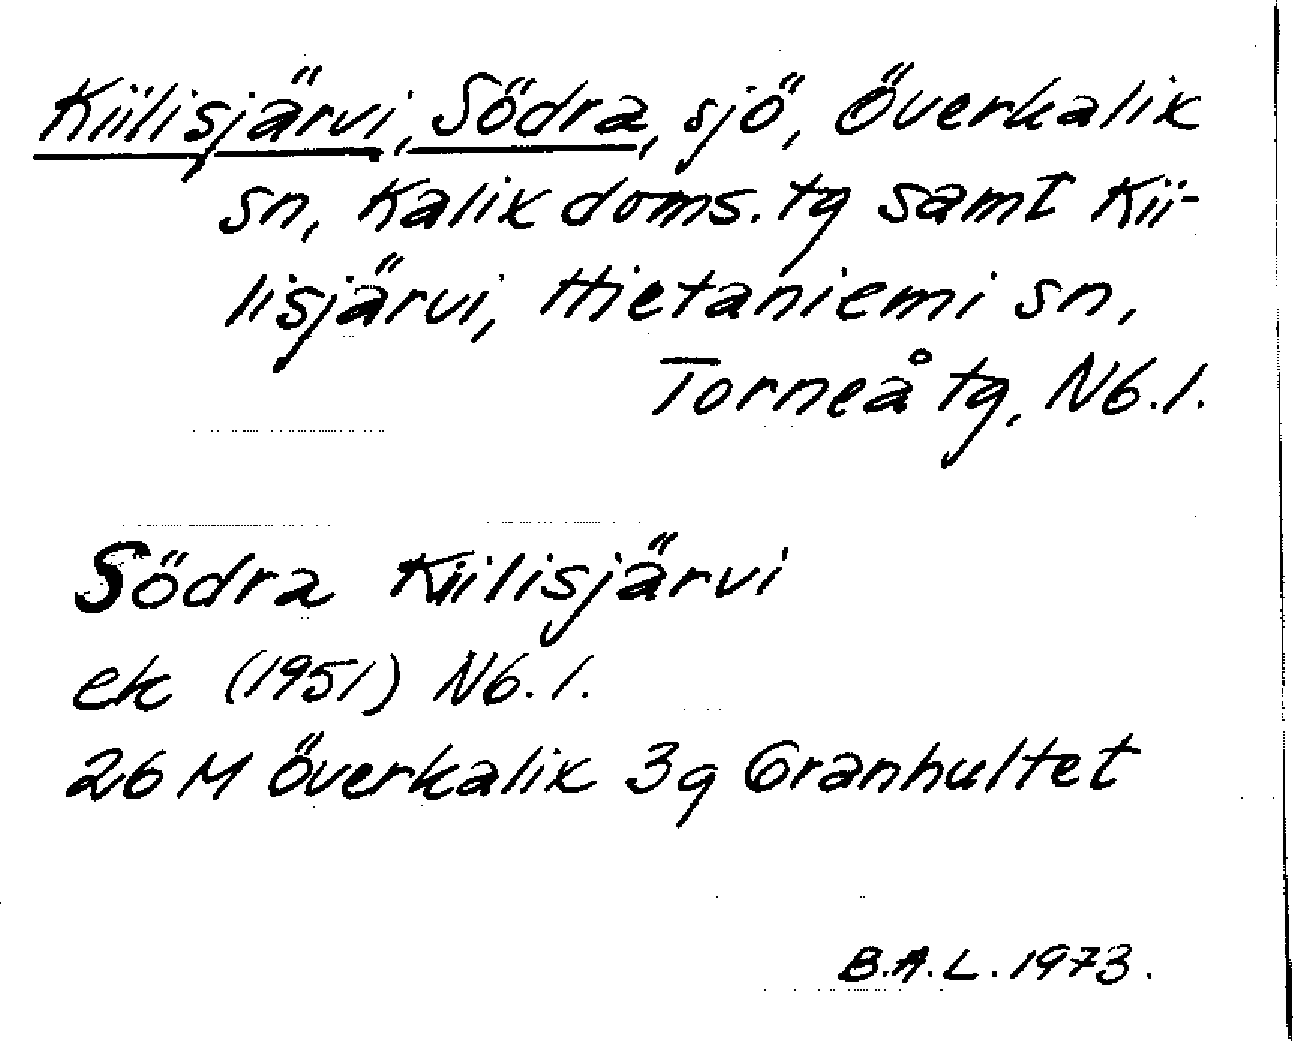 Kiilisjärvi, Södra, sjö, Överkalix
sn, Kalix doms. tg samt Kii-
lisjärvi, Hietaniemi sn,
Torneå tg, Nb. l.
Södra Kiilisjärvi
ek (1951) Nb. l.
26 M Överkalix 3g Granhultet
B.A.L. 1973.